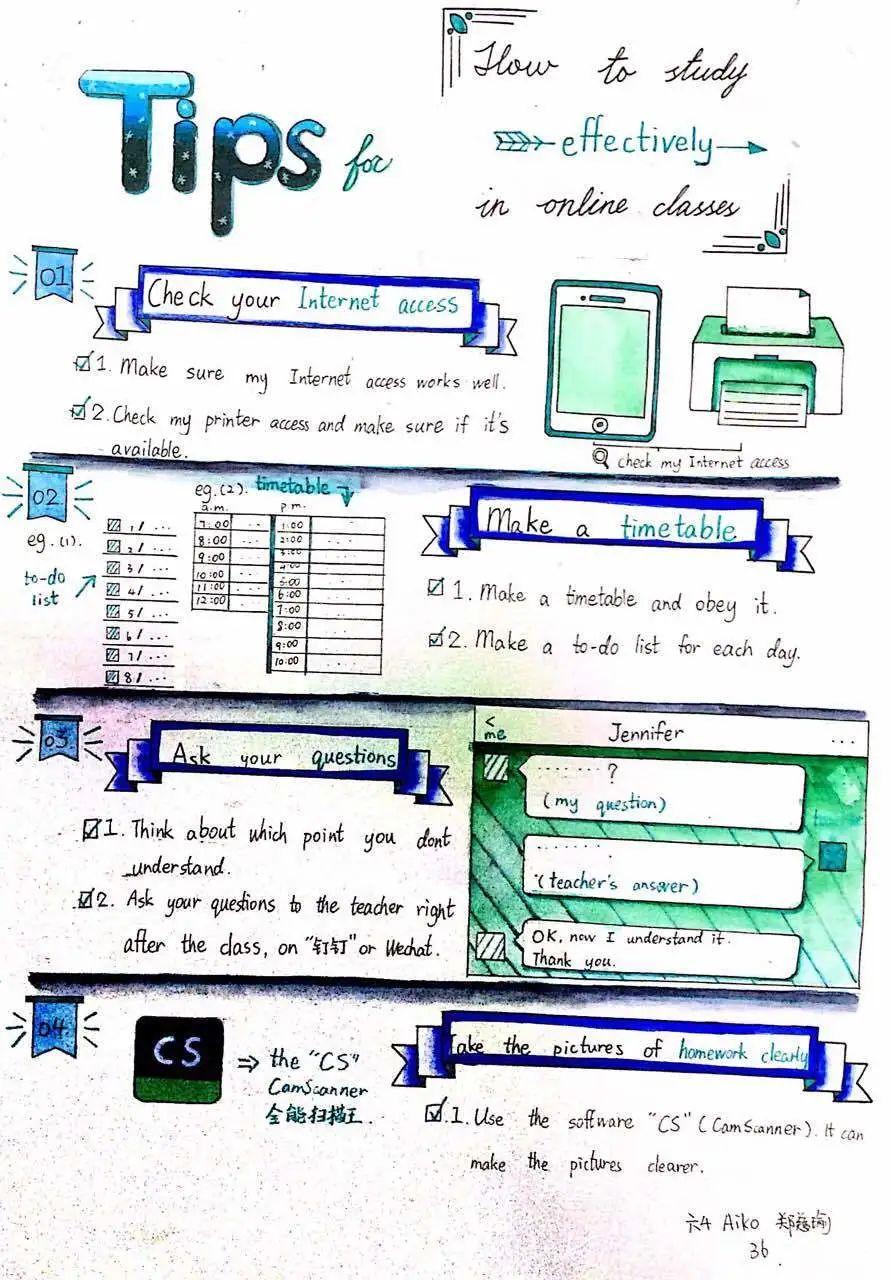 Tips for
How to study
effectively
in online classes
01
Check your Internet access
1. Make sure my Internet access works well.
2. Check my printer access and make sure if it's
available.
check my Internet access
02
eg.(1).
to-do
list
1/ ...
2/ ...
3/ ...
4/ ...
5/ ...
6/ ...
7/ ...
8/ ...
eg.(2). timetable
a.m.
7:00 ...
8:00 ...
9:00 ...
10:00 ...
11:00 ...
12:00 ...
p.m.
1:00 ...
2:00 ...
3:00 ...
4:00 ...
5:00 ...
6:00 ...
7:00 ...
8:00 ...
9:00 ...
10:00 ...
Make a timetable
1. Make a timetable and obey it.
2. Make a to-do list for each day.
03
Ask your questions
1. Think about which point you dont
understand.
2. Ask your questions to the teacher right
after the class, on "钉钉" or Wechat.
< me
Jennifer
...
....... ?
(my question)
.......
(teacher's answer)
OK, now I understand it.
Thank you.
04
CS
⇒ the "CS"
CamScanner
全能扫描王.
Take the pictures of homework clearly
1. Use the software "CS" (CamScanner). It can
make the pictures clearer.
六4 Aiko 郑慈瑜
36